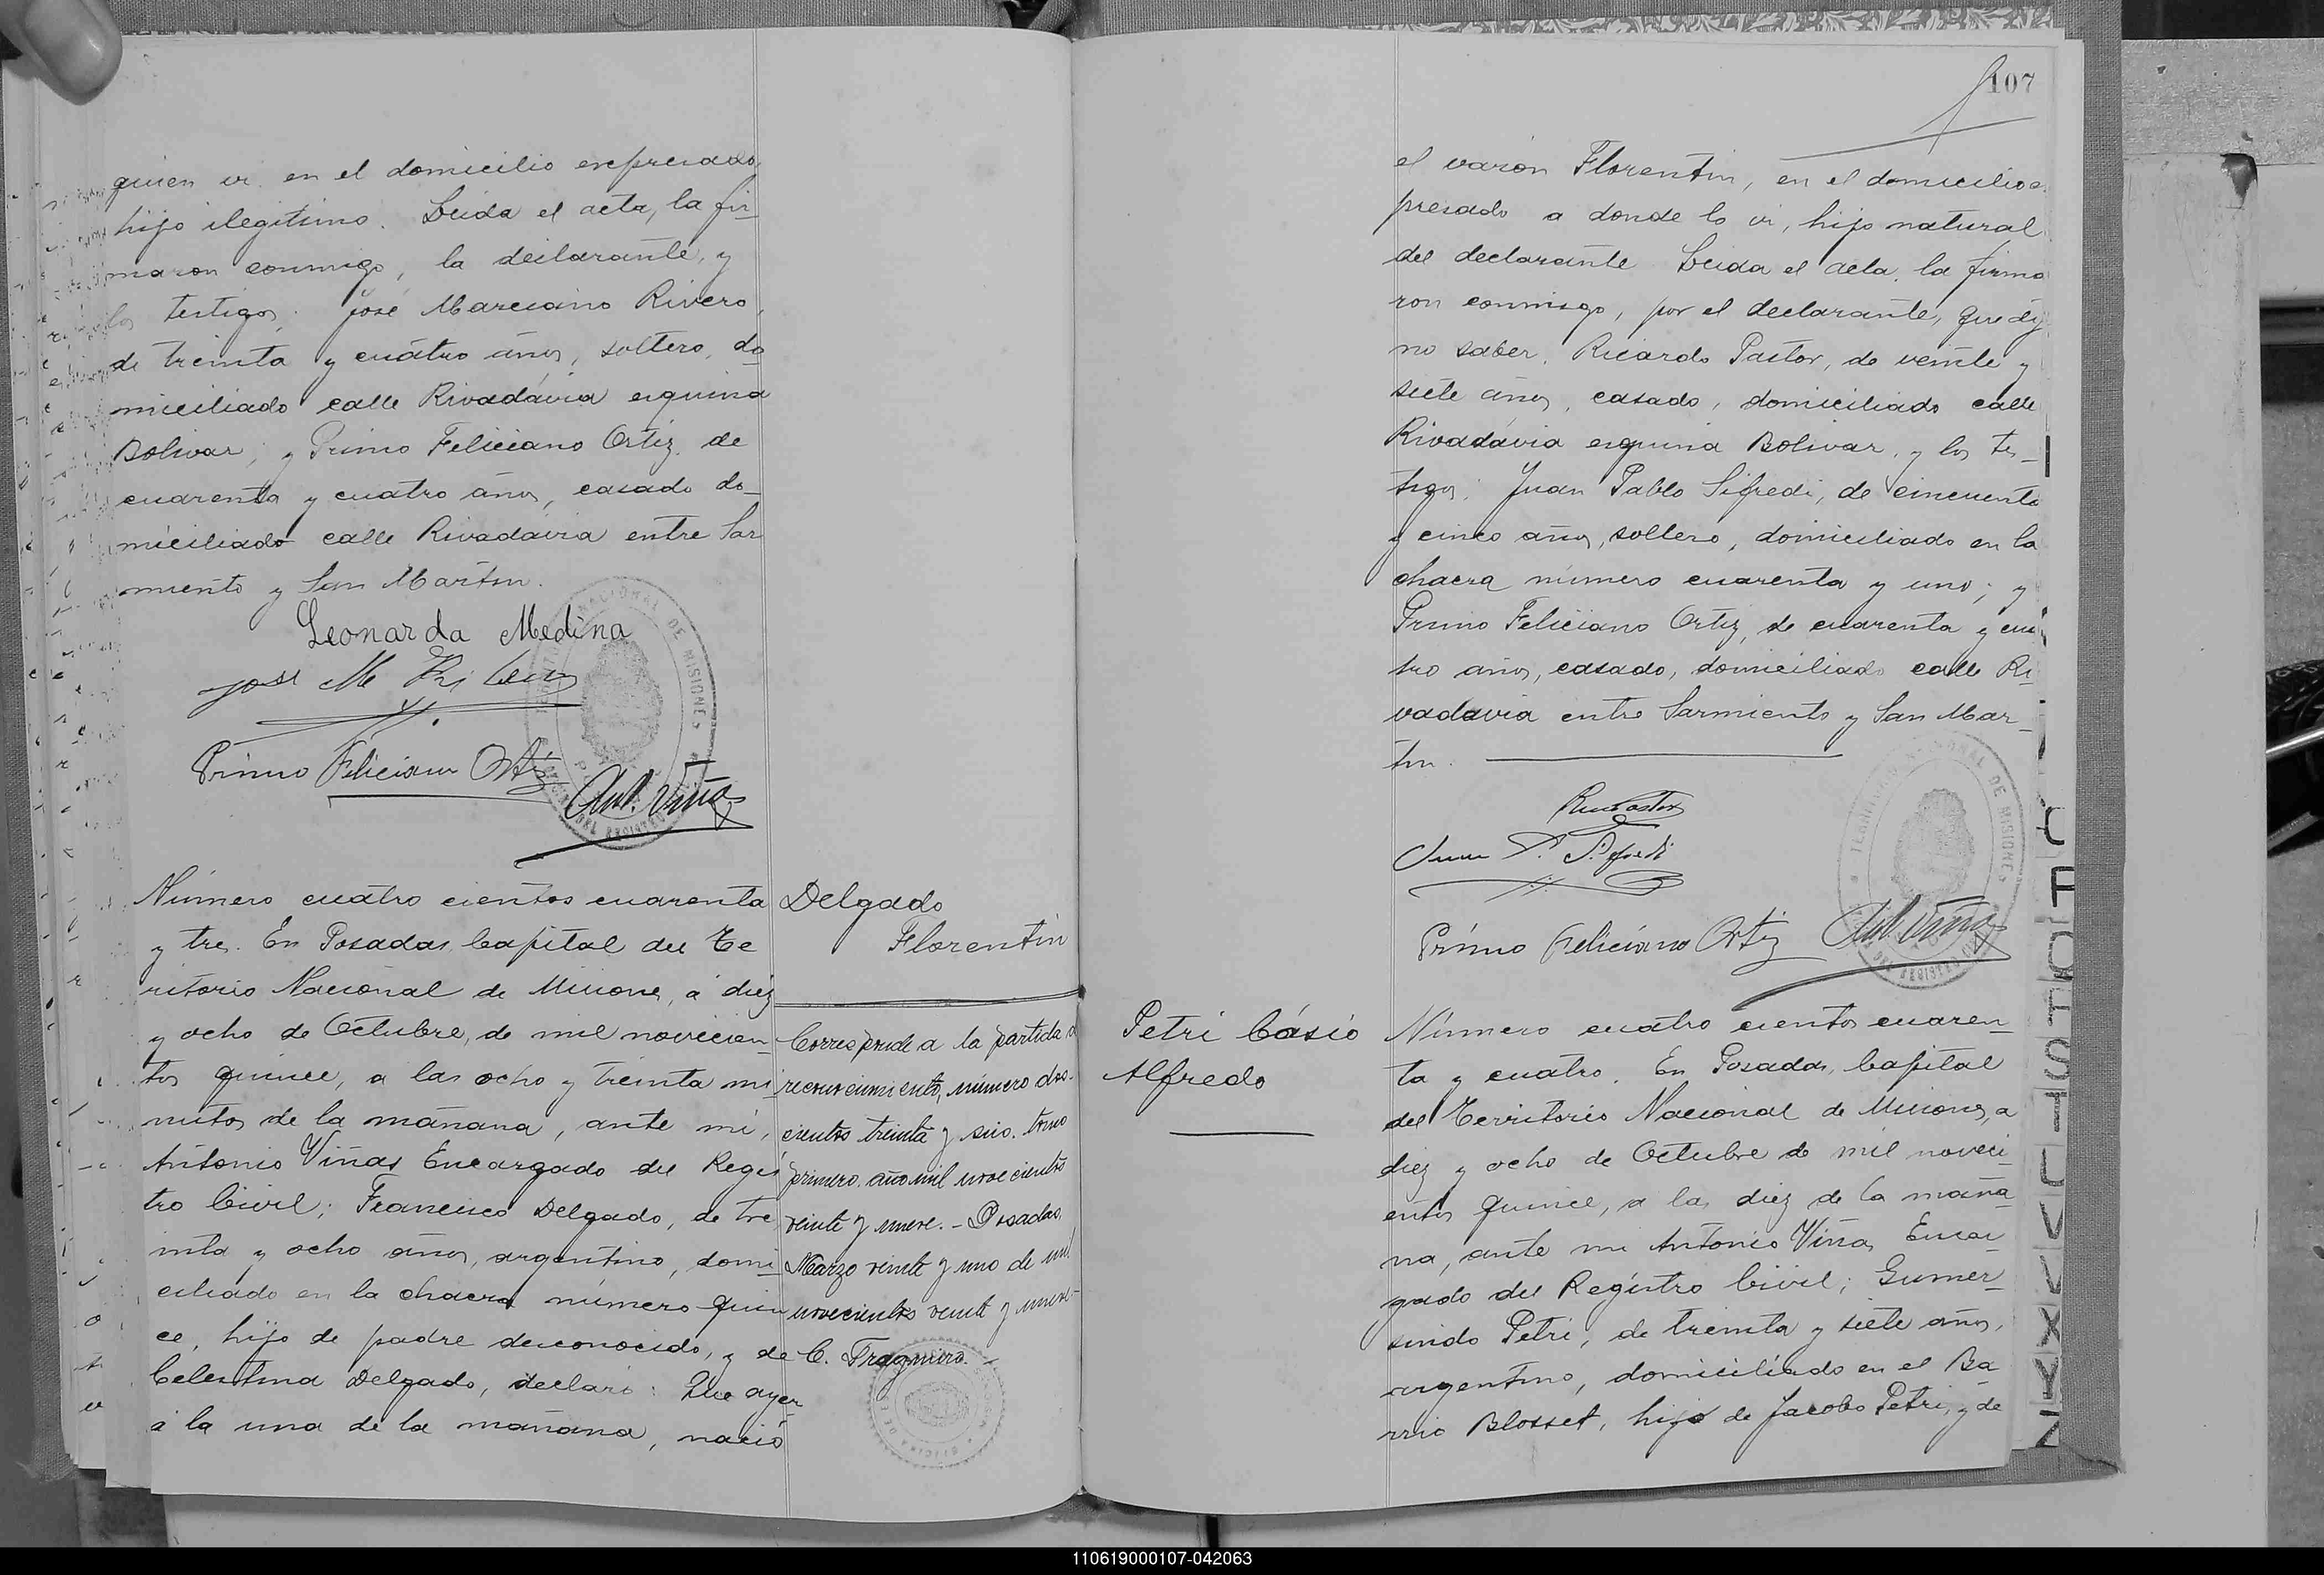 quien vi en el domicilio expresado,
hijo ilegitimo. Leida el acta, la fir_
maron conmigo, la declarante, y
los testigos: José Marciano Rivero,
de treinta y cuatro años, soltero, do_
miciliado calle Rivadavia esquina
Bolivar; y Primo Feliciano Ortiz, de
cuarenta y cuatro años, casado do_
miciliado calle Rivadavia entre Sar
miento y San Martin.
Leonarda Medina
José M Rivero
Primo Feliciano Ortiz
Ant. Viñas
Número cuatro cientos cuarenta
y tres. En Posadas Capital del Te
rritorio Nacional de Misiones, á diez
y ocho de Octubre, de mil novecien_
tos quince, a las ocho y treinta mi
nutos de la mañana, ante mi,
Antonio Viñas Encargado del Regis
tro Civil; Francisco Delgado, de tre
inta y ocho años, argentino, domi_
ciliado en la chacra número quin
ce, hijo de padre desconocido, y de
Celestina Delgado, declaró: Que ayer
á la una de la mañana, nació
Delgado
Florentin
Corresponde a la partida de
reconocimiento, número dos_
cientos treinta y seis. tomo
primero. año mil novecientos
veinte y nueve. - Posadas,
Marzo veinte y uno de mil
novecientos veinte y nueve-
C. Fragueiro.
107
el varón Florentin, en el domicilio ex
presado a donde lo vi, hijo natural
del declarante Leida el acta, la firma
ron conmigo, por el declarante, que dijo
no saber, Ricardo Pastor, de veinte y
siete años, casado, domiciliado calle
Rivadavia esquina Bolivar, y los tes_
tigos: Juan Pablo Sifredi, de cincuenta
y cinco años, soltero, domiciliado en la
chacra número cuarenta y uno; y
Primo Feliciano Ortiz, de cuarenta y cua
tro años, casado, domiciliado calle Ri_
vadavia entre Sarmiento y San Mar_
tin.
Juan P. Sifredi
Primo Feliciano Ortiz
Ant. Viñas
Petri Cásio
Alfredo
Número cuatro cientos cuaren_
ta y cuatro. En Posadas, Capital
del Territorio Nacional de Misiones, a
diez y ocho de Octubre de mil noveci_
entos quince, a las diez de la maña
na, ante mi Antonio Viñas Encar_
gado del Registro Civil; Gumer_
sindo Petri, de treinta y siete años,
argentino, domiciliado en el Ba_
rrio Blosset, hijo de Jacobo Petri, y de
F
S
T
U
V
V
X
Y
Z
110619000107-042063